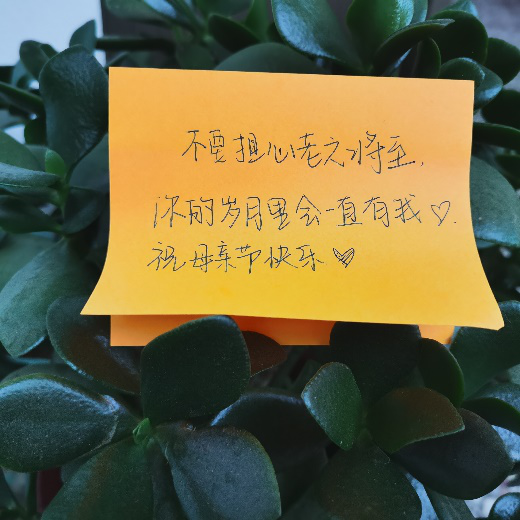 不要担心老之将至,
你的岁月里会一直有我♡.
祝母亲节快乐♡